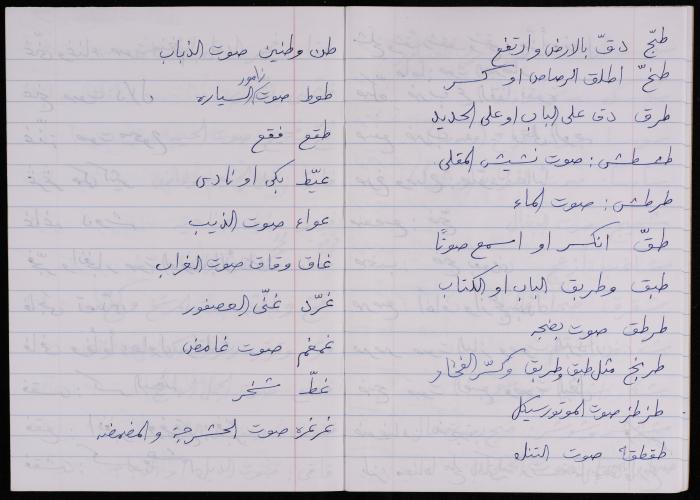 طبّج دقّ بالارض وارتفع
طخّ اطلق الرصاص او كسر
طرق دق على الباب او على الحديد
طعطش: صوت نشيش المقلى
طرطش: صوت الماء
طقّ انكسر او اسمع صوتًا
طبق وطربق الباب او الكتاب
طرطق صوت بضجه
طربخ مثل طبق وطربق وكسّر الفخار
طزطز صوت الموتورسيكل
طقطقة صوت التتله
طن وطنين صوت الذباب
طوط صوت زامور السياره
طقع فقع
عيّط بكى او نادى
عواء صوت الذيب
غاق وقاق صوت الغراب
غرّد غنّى العصفور
غمغم صوت غامض
غطّ شخر
غرغره صوت الحشرجة والمضمضه